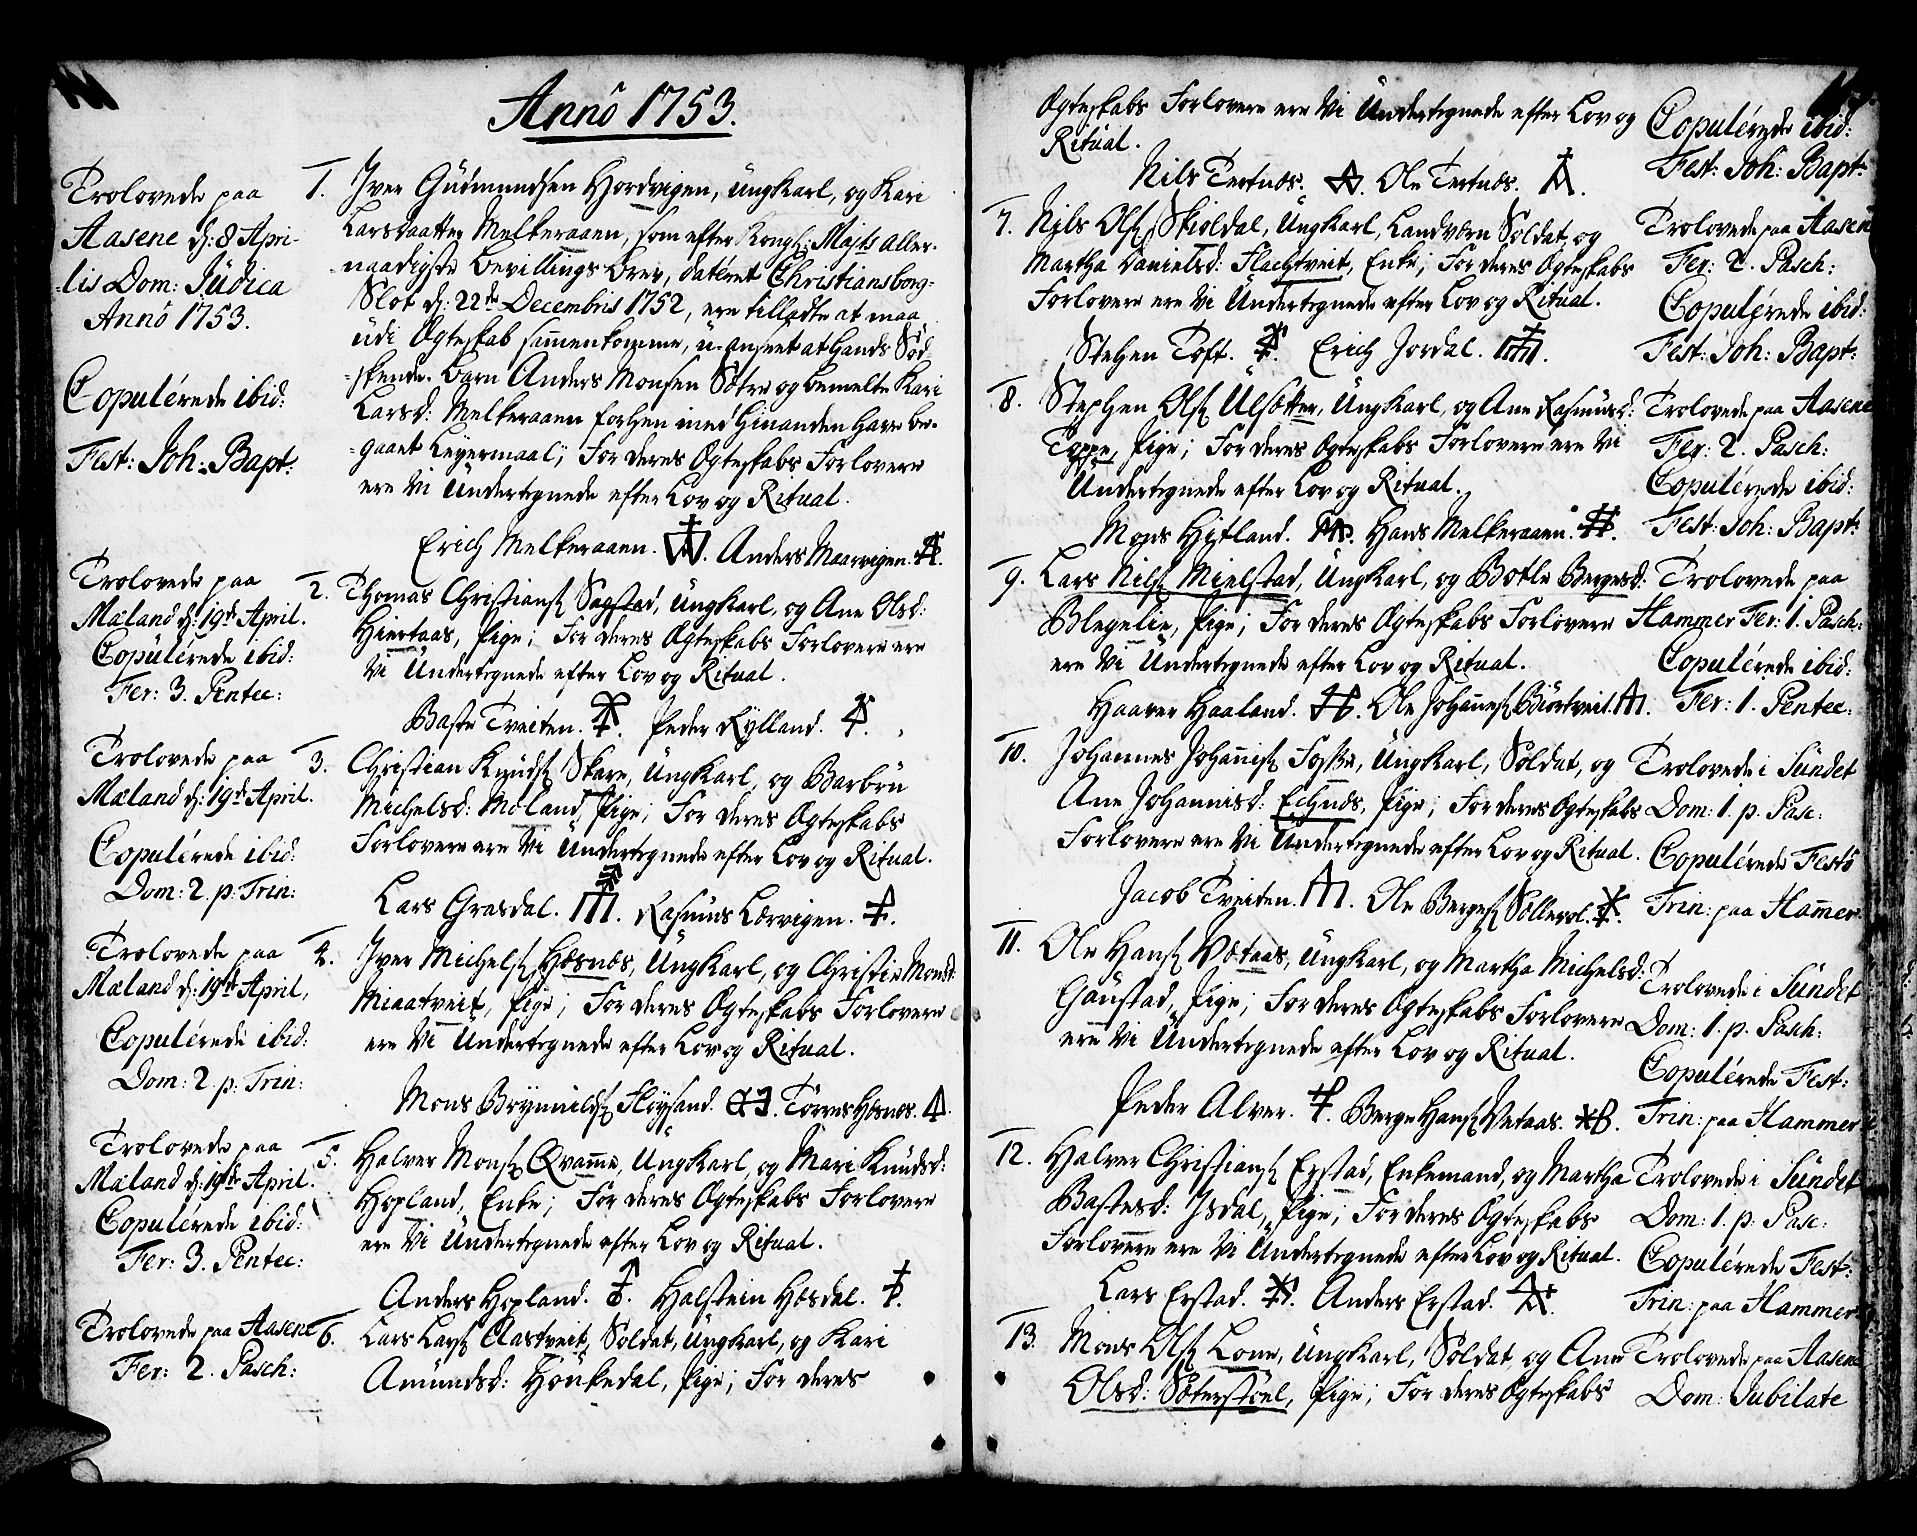 Anno 1753.
Trolovede paa
Aasene d: 8 Apri-
lis Dom: Judica
Anno 1753.
Copulérede ibid:
Fest: Joh: Bapt:
1. Iver Gudmundsen Hordvigen, UngKarl, og Kari
Larsdaatter Melkeraaen, som efter Kongl: Majts aller-
naadigste Bevillings brev, datéret Christiansborg-
Slot d: 22de Decembris 1752, ere tilladte at maa
udi Ægteskab sammenkomme, u-anseet at hands Sød-
skende-barn Anders Monsen Sætre og bemelte Kari
Larsd: Melkeraaen forhen med hinanden have be-
gaaet Leyermaal; For deres Ægteskabs Forlovere
ere Vi Undertegnede efter Lov og Ritual.
Erich Melkeraaen. Anders Maarvigen.
Trolovede paa
Mæland d: 19de April.
Copulérede ibid:
Fer: 3. Pentec:
2. Thomas Christians Sagstad, UngKarl, og Ane Olsd:
Hiertaas, Pige; For deres Ægteskabs Forlovere ere
Vi Undertegnede efter Lov og Ritual.
Baste Tveiten. Peder Rylland.
Trolovede paa
Mæland d: 19de April.
Copulérede ibid:
Dom: 2. p: Trin:
3. Christian Knuds Skare, UngKarl, og Barbru
Michelsd: Mæland, Pige; For deres Ægteskabs
Forlovere ere Vi Undertegnede efter Lov og Ritual.
Lars Grasdal. Rasmus Lervigen.
Trolovede paa
Mæland d: 19de April,
Copulérede ibid:
Dom: 2. p: Trin:
4. Iver Michels Hæsnæs, UngKarl, og Christie Monsd:
Miaatveit, Pige; For deres Ægteskabs Forlovere
ere Vi Undertegnede efter Lov og Ritual.
Mons Brynnilds Fløysand. Tørres Hæsnæs.
Trolovede paa
Mæland d: 19de April.
Copulérede ibid:
Fer: 3. Pentec:
5. Halver Mons Qvamme, UngKarl, og Mari Knudsd:
Hopland, Enke; For deres Ægteskabs Forlovere
ere Vi Undertegnede efter Lov og Ritual.
Anders Hopland. Halstein Hæsdal.
Trolovede paa Aasene
Fer: 2. Pasch:
6. Lars Lars Aastveit, Soldat, UngKarl, og Kari
Amundsd: Hønkedal, Pige; For deres
Ægteskabs Forlovere ere Vi Undertegnede efter Lov og
Ritual.
Nils Tertnæs. Ole Tertnæs.
Copulérede ibid:
Fest: Joh: Bapt:
7. Nils Ols Skioldal, UngKarl, Landværn Soldat, og
Martha Danielsd: Flachtveit, Enke; For deres Ægteskabs
Forlovere ere Vi Undertegnede efter Lov og Ritual.
Stephen Toft. Erich Jordal.
Trolovede paa Aasene
Fer: 2. Pasch:
Copulérede ibid:
Fest: Joh: Bapt:
8. Stephen Ols Ulsætter, UngKarl, og Ane Rasmusd:
Toppe, Pige; For deres Ægteskabs Forlovere ere Vi
Undertegnede efter Lov og Ritual.
Mons Hitland. Hans Melkeraaen.
Trolovede paa Aasene
Fer: 2. Pasch:
Copulérede ibid:
Fest: Joh: Bapt:
9. Lars Nils Mielstad, UngKarl, og Botle Bergesd:
Blegelie, Pige; For deres Ægteskabs Forlovere
ere Vi Undertegnede efter Lov og Ritual.
Haaver Haaland. Ole Johannes Biørtveit.
Trolovede paa
Hammer Fer: 1. Pasch:
Copulérede ibid:
Fer: 1. Pentec:
10. Johannes Johannis Foske, UngKarl, Soldat, og
Ane Johannisd: Echnæs, Pige; For deres Ægteskabs
Forlovere ere Vi Undertegnede efter Lov og Ritual.
Jacob Tveiten. Ole Berges Sollerol.
Trolovede i Sundet
Dom: 1. p: Pasc:
Copulérede Festo
Trin: paa Hamer.
11. Ole Hans Vætaas, UngKarl, og Martha Michelsd:
Gaustad, Pige; For deres Ægteskabs Forlovere
ere Vi Undertegnede efter Lov og Ritual.
Peder Alver. Berge Hans Vetaas.
Trolovede i Sundet
Dom: 1. p: Pasch:
Copulérede Fest:
Trin: paa Hammer
12. Halver Christians Erstad, Enkemand, og Martha
Bastesd: Isdal, Pige; For deres Ægteskabs
Forlovere ere Vi Undertegnede efter Lov og Ritual.
Lars Erstad. Anders Erstad.
Trolovede i Sundet
Dom: 1. p: Pasc:
Copulérede Fest:
Trin: paa Hammer
13. Mons Ols Lone, UngKarl, Soldat, og Ane
Olsd: Sæterstøel, Pige; For deres Ægteskabs
Trolovede paa Aasene
Dom: Jubilate